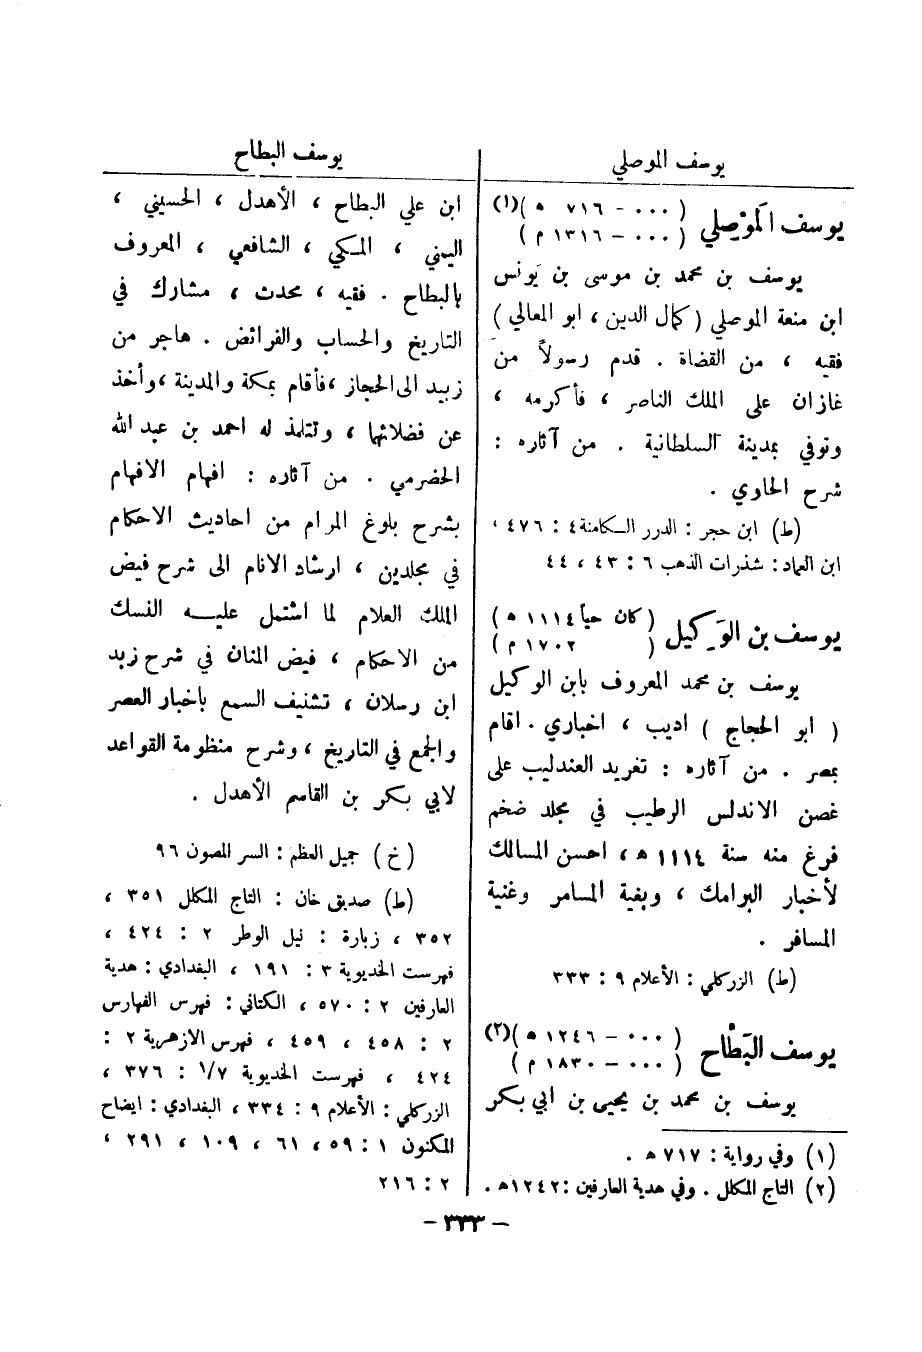 يوسف الموصلي
يوسف المَوْصِلي ( ٠٠٠ - ٧١٦ ه )(١)
( ٠٠٠ - ١٣١٦ م )
يوسف بن محمد بن موسى بن يونس
ابن منعة الموصلي ( كمال الدين ، ابو المعالي )
فقيه ، من القضاة . قدم رسولاً من
غازان على الملك الناصر ، فأكرمه ،
وتوفي بمدينة السلطانية . من آثاره :
شرح الحاوي .
(ط) ابن حجر : الدرر الكامنة ٤ : ٤٧٦ ،
ابن العماد : شذرات الذهب ٦ : ٤٣ ، ٤٤
يوسف بن الوَكيل ( كان حياً ١١١٤ ه )
( ١٧٠٢ م )
يوسف بن محمد المعروف بابن الوكيل
( ابو الحجاج ) اديب ، اخباري . اقام
بمصر . من آثاره : تغريد العندليب على
غصن الاندلس الرطيب في مجلد ضخم
فرغ منه سنة ١١١٤ ه ، احسن المسالك
لأخبار البرامك ، وبغية المسامر وغنية
المسافر .
(ط) الزركلي : الأعلام ٩ : ٣٣٣
يوسف البَطّاح ( ٠٠٠ - ١٢٤٦ ه )(٢)
( ٠٠٠ - ١٨٣٠ م )
يوسف بن محمد بن يحيى بن ابي بكر
(١) وفي رواية : ٧١٧ ه .
(٢) التاج المكلل . وفي هدية العارفين : ١٢٤٢ ه .
يوسف البطاح
ابن علي البطاح ، الأهدل ، الحسيني ،
اليمني ، المكي ، الشافعي ، المعروف
بالبطاح . فقيه ، محدث ، مشارك في
التاريخ والحساب والفرائض . هاجر من
زبيد الى الحجاز ، فأقام بمكة والمدينة ، وأخذ
عن فضلائها ، وتتلمذ له احمد بن عبد الله
الحضرمي . من آثاره : افهام الافهام
بشرح بلوغ المرام من احاديث الاحكام
في مجلدين ، ارشاد الانام الى شرح فيض
الملك العلام لما اشتمل عليه النسك
من الاحكام ، فيض المنان في شرح زبد
ابن رسلان ، تشنيف السمع بأخبار العصر
والجمع في التاريخ ، وشرح منظومة القواعد
لابي بكر بن القاسم الأهدل .
(خ) جميل العظم : السر المصون ٩٦
(ط) صديق خان : التاج المكلل ٣٥١ ،
٣٥٢ ، زبارة : نيل الوطر ٢ : ٤٢٤ ،
فهرست الخديوية ٣ : ١٩١ ، البغدادي : هدية
العارفين ٢ : ٥٧٠ ، الكتاني : فهرس الفهارس
٢ : ٤٥٨ ، ٤٥٩ ، فهرس الازهرية ٢ :
٤٢٤ ، فهرست الخديوية ١/٧ : ٣٧٦ ،
الزركلي : الأعلام ٩ : ٣٣٤ ، البغدادي : ايضاح
المكنون ١ : ٥٩ ، ٦١ ، ١٠٩ ، ٢٩١ ،
٢ : ٢١٦
- ٣٣٣ -